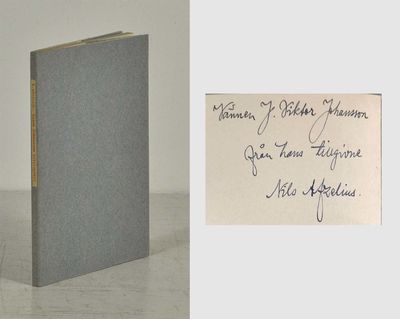 Vännen J. Viktor Johansson
från hans tillgivne
Nils Afzelius.